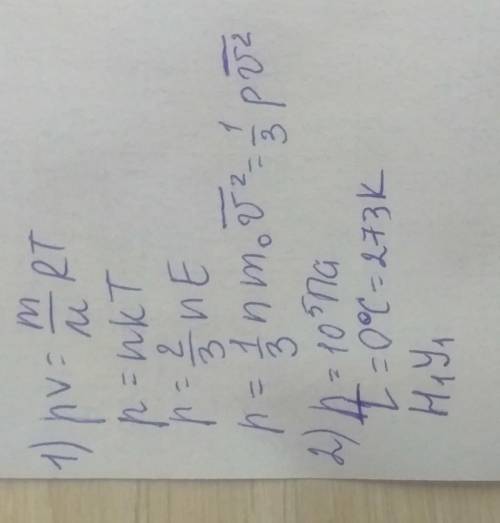 1) pV = m/μ RT
p = nkT
p = 2/3 nE
p = 1/3 n m₀ v̅² = 1/3 ρv̅²
2) p = 10⁵ Па
t = 0°C = 273K
Н.У.